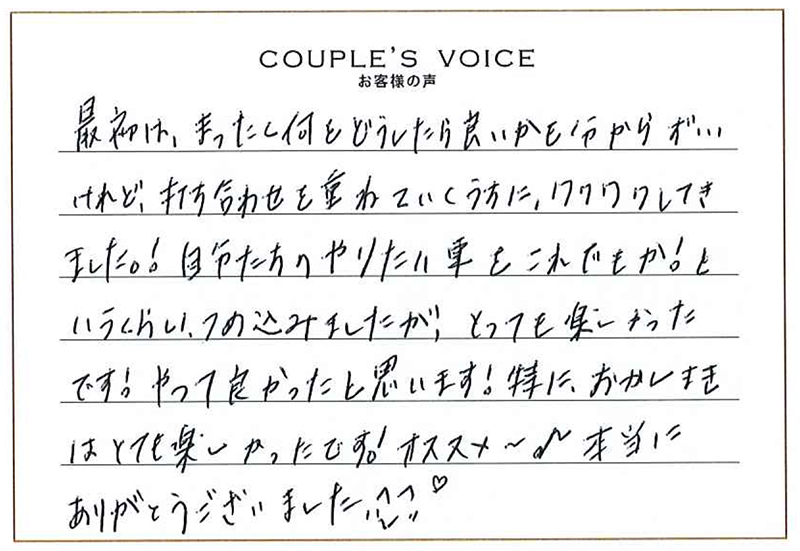 COUPLE'S VOICE
お客様の声
最初は、まったく何をどうしたら良いかも分からず…
けれど、打ち合わせを重ねていくうちに、ワクワクしてき
ました!自分たちのやりたい事をこれでもか!と
いうくらい、つめ込みましたが、とっても楽しかった
です!やって良かったと思います!特に、おかしまき
はとても楽しかったです!オススメ〜♪ 本当に
ありがとうございました!!^^♡